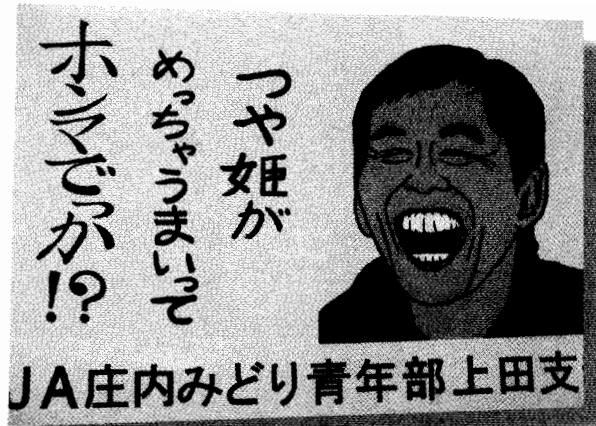 つや姫が
めっちゃうまいって
ホンマでっか!?
JA庄内みどり青年部上田支